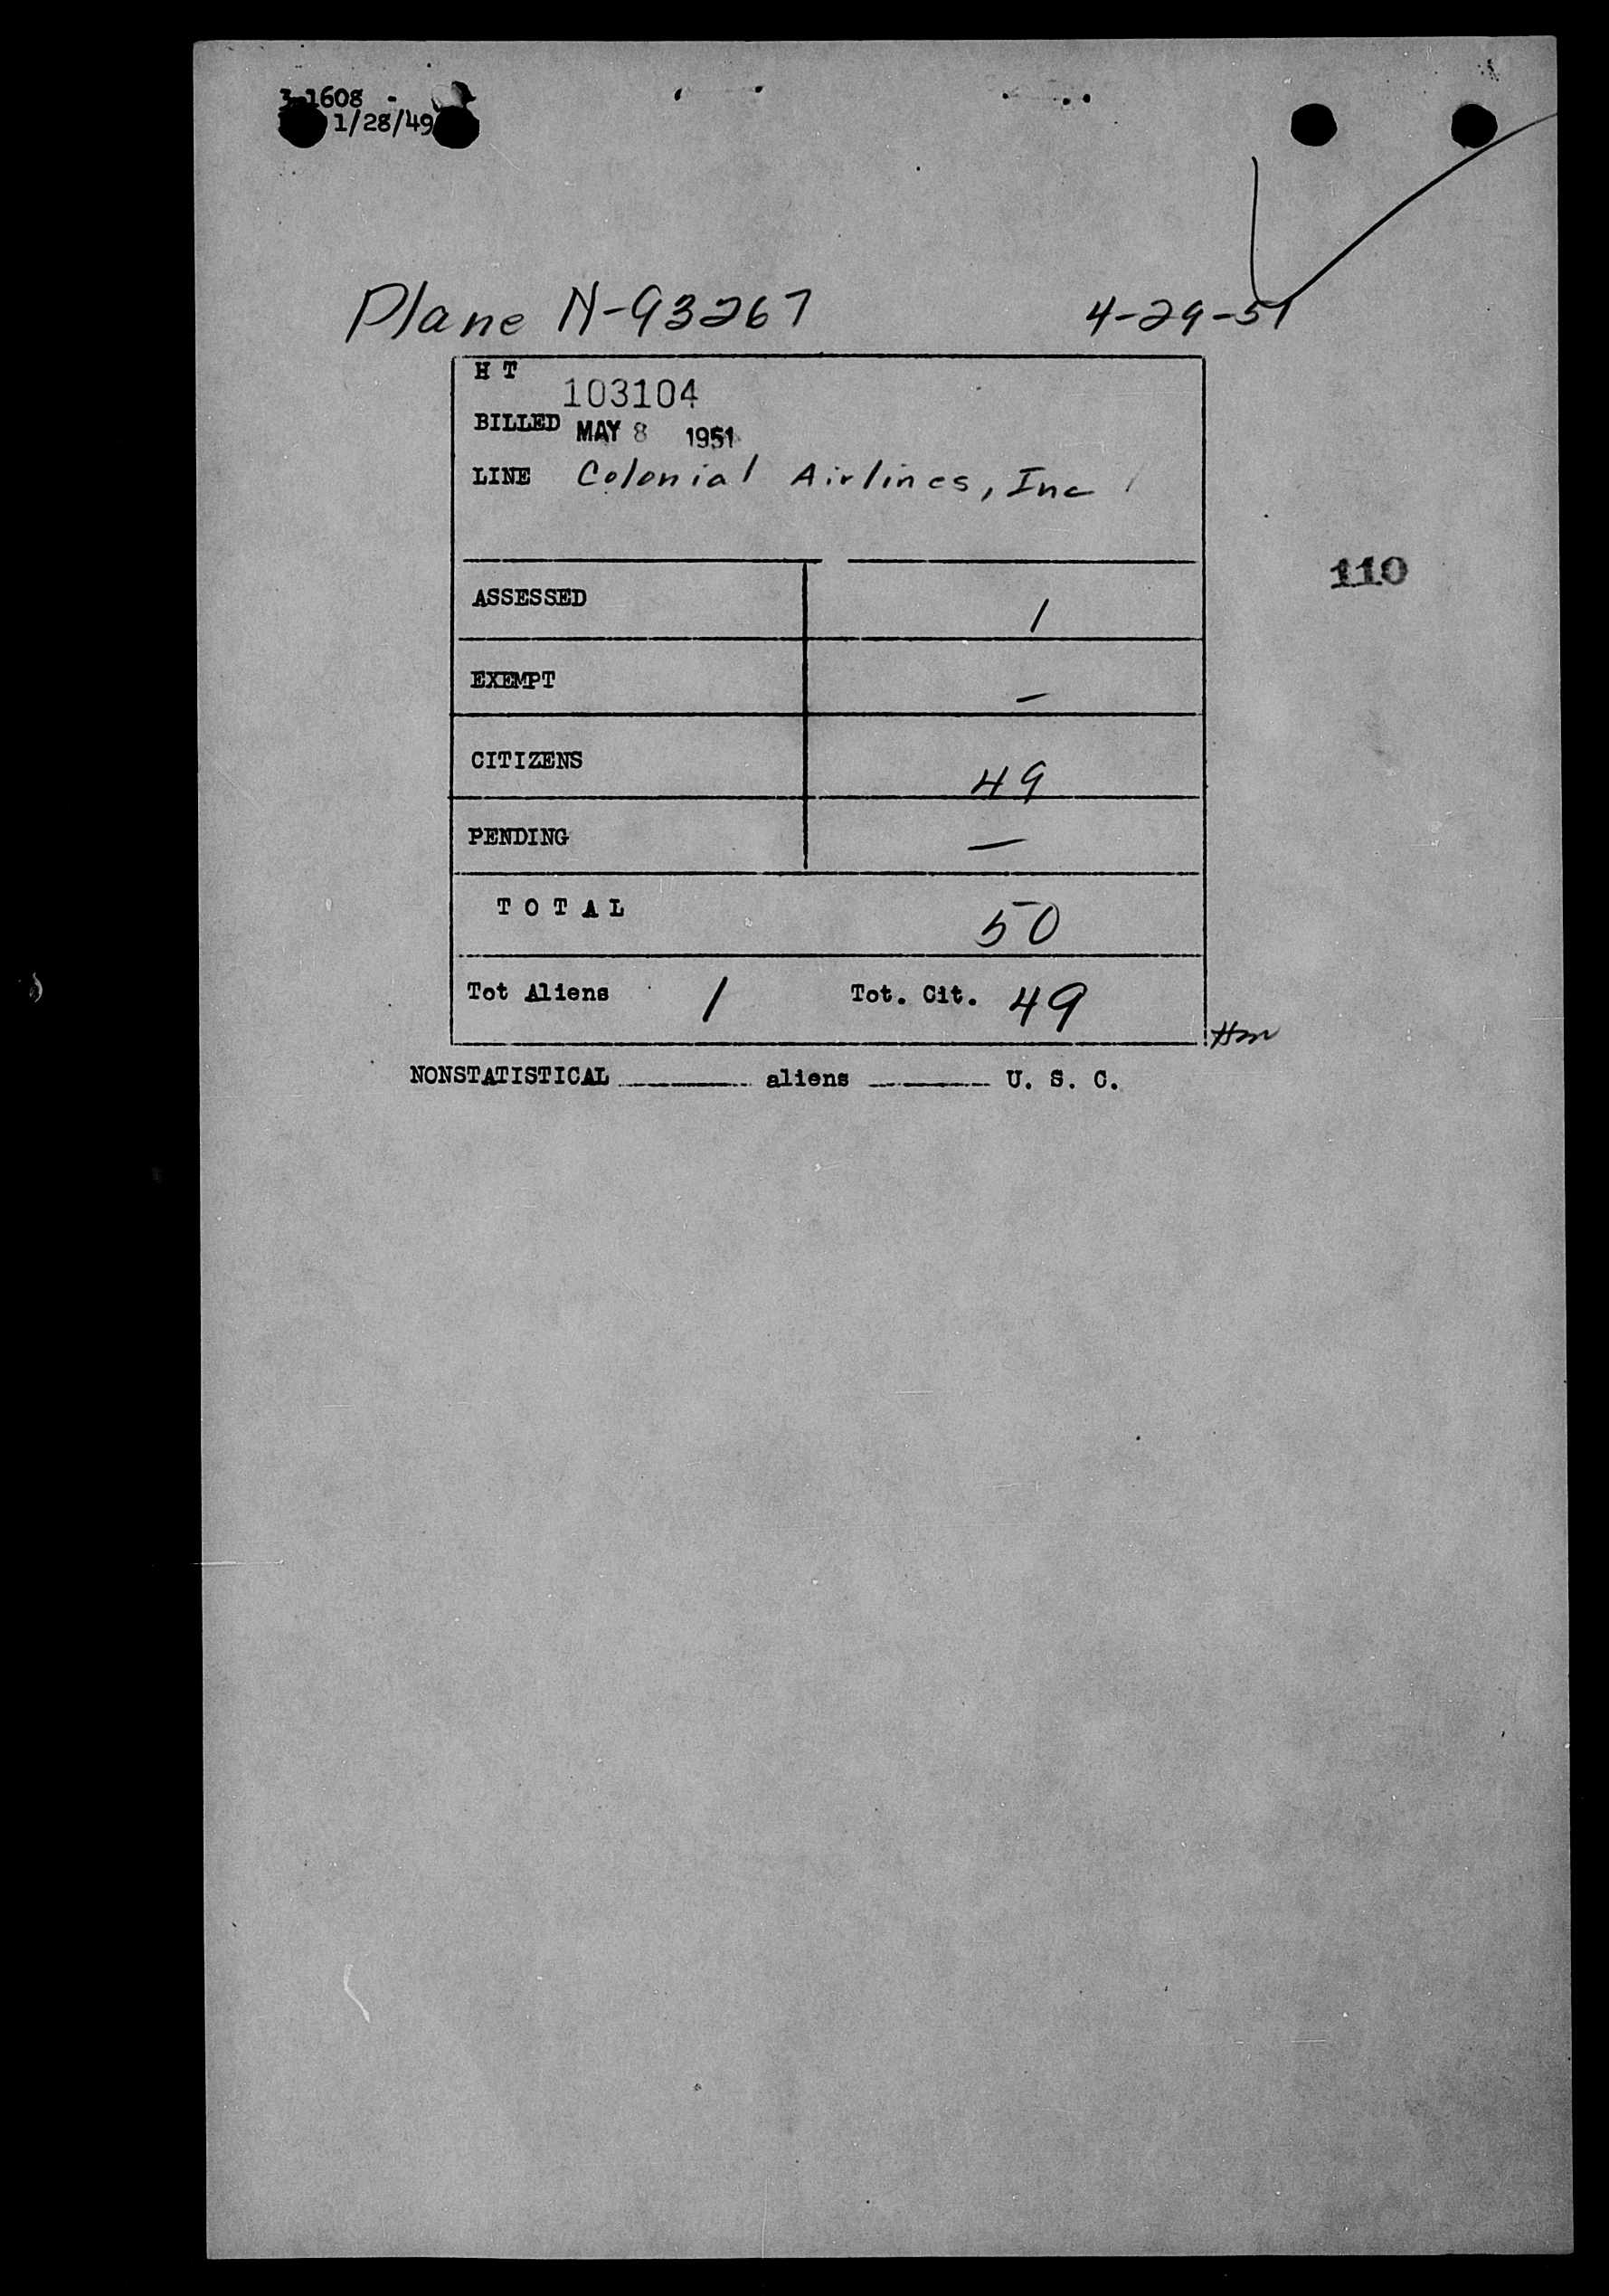 3-1608 -
1/28/49
Plane N-93267 4-29-51
H T
103104
BILLED MAY 8 1951
LINE Colonial Airlines, Inc
110
ASSESSED 1
EXEMPT —
CITIZENS 49
PENDING —
T O T A L 50
Tot Aliens 1 Tot. Cit. 49
NONSTATISTICAL ________ aliens ________ U. S. C.